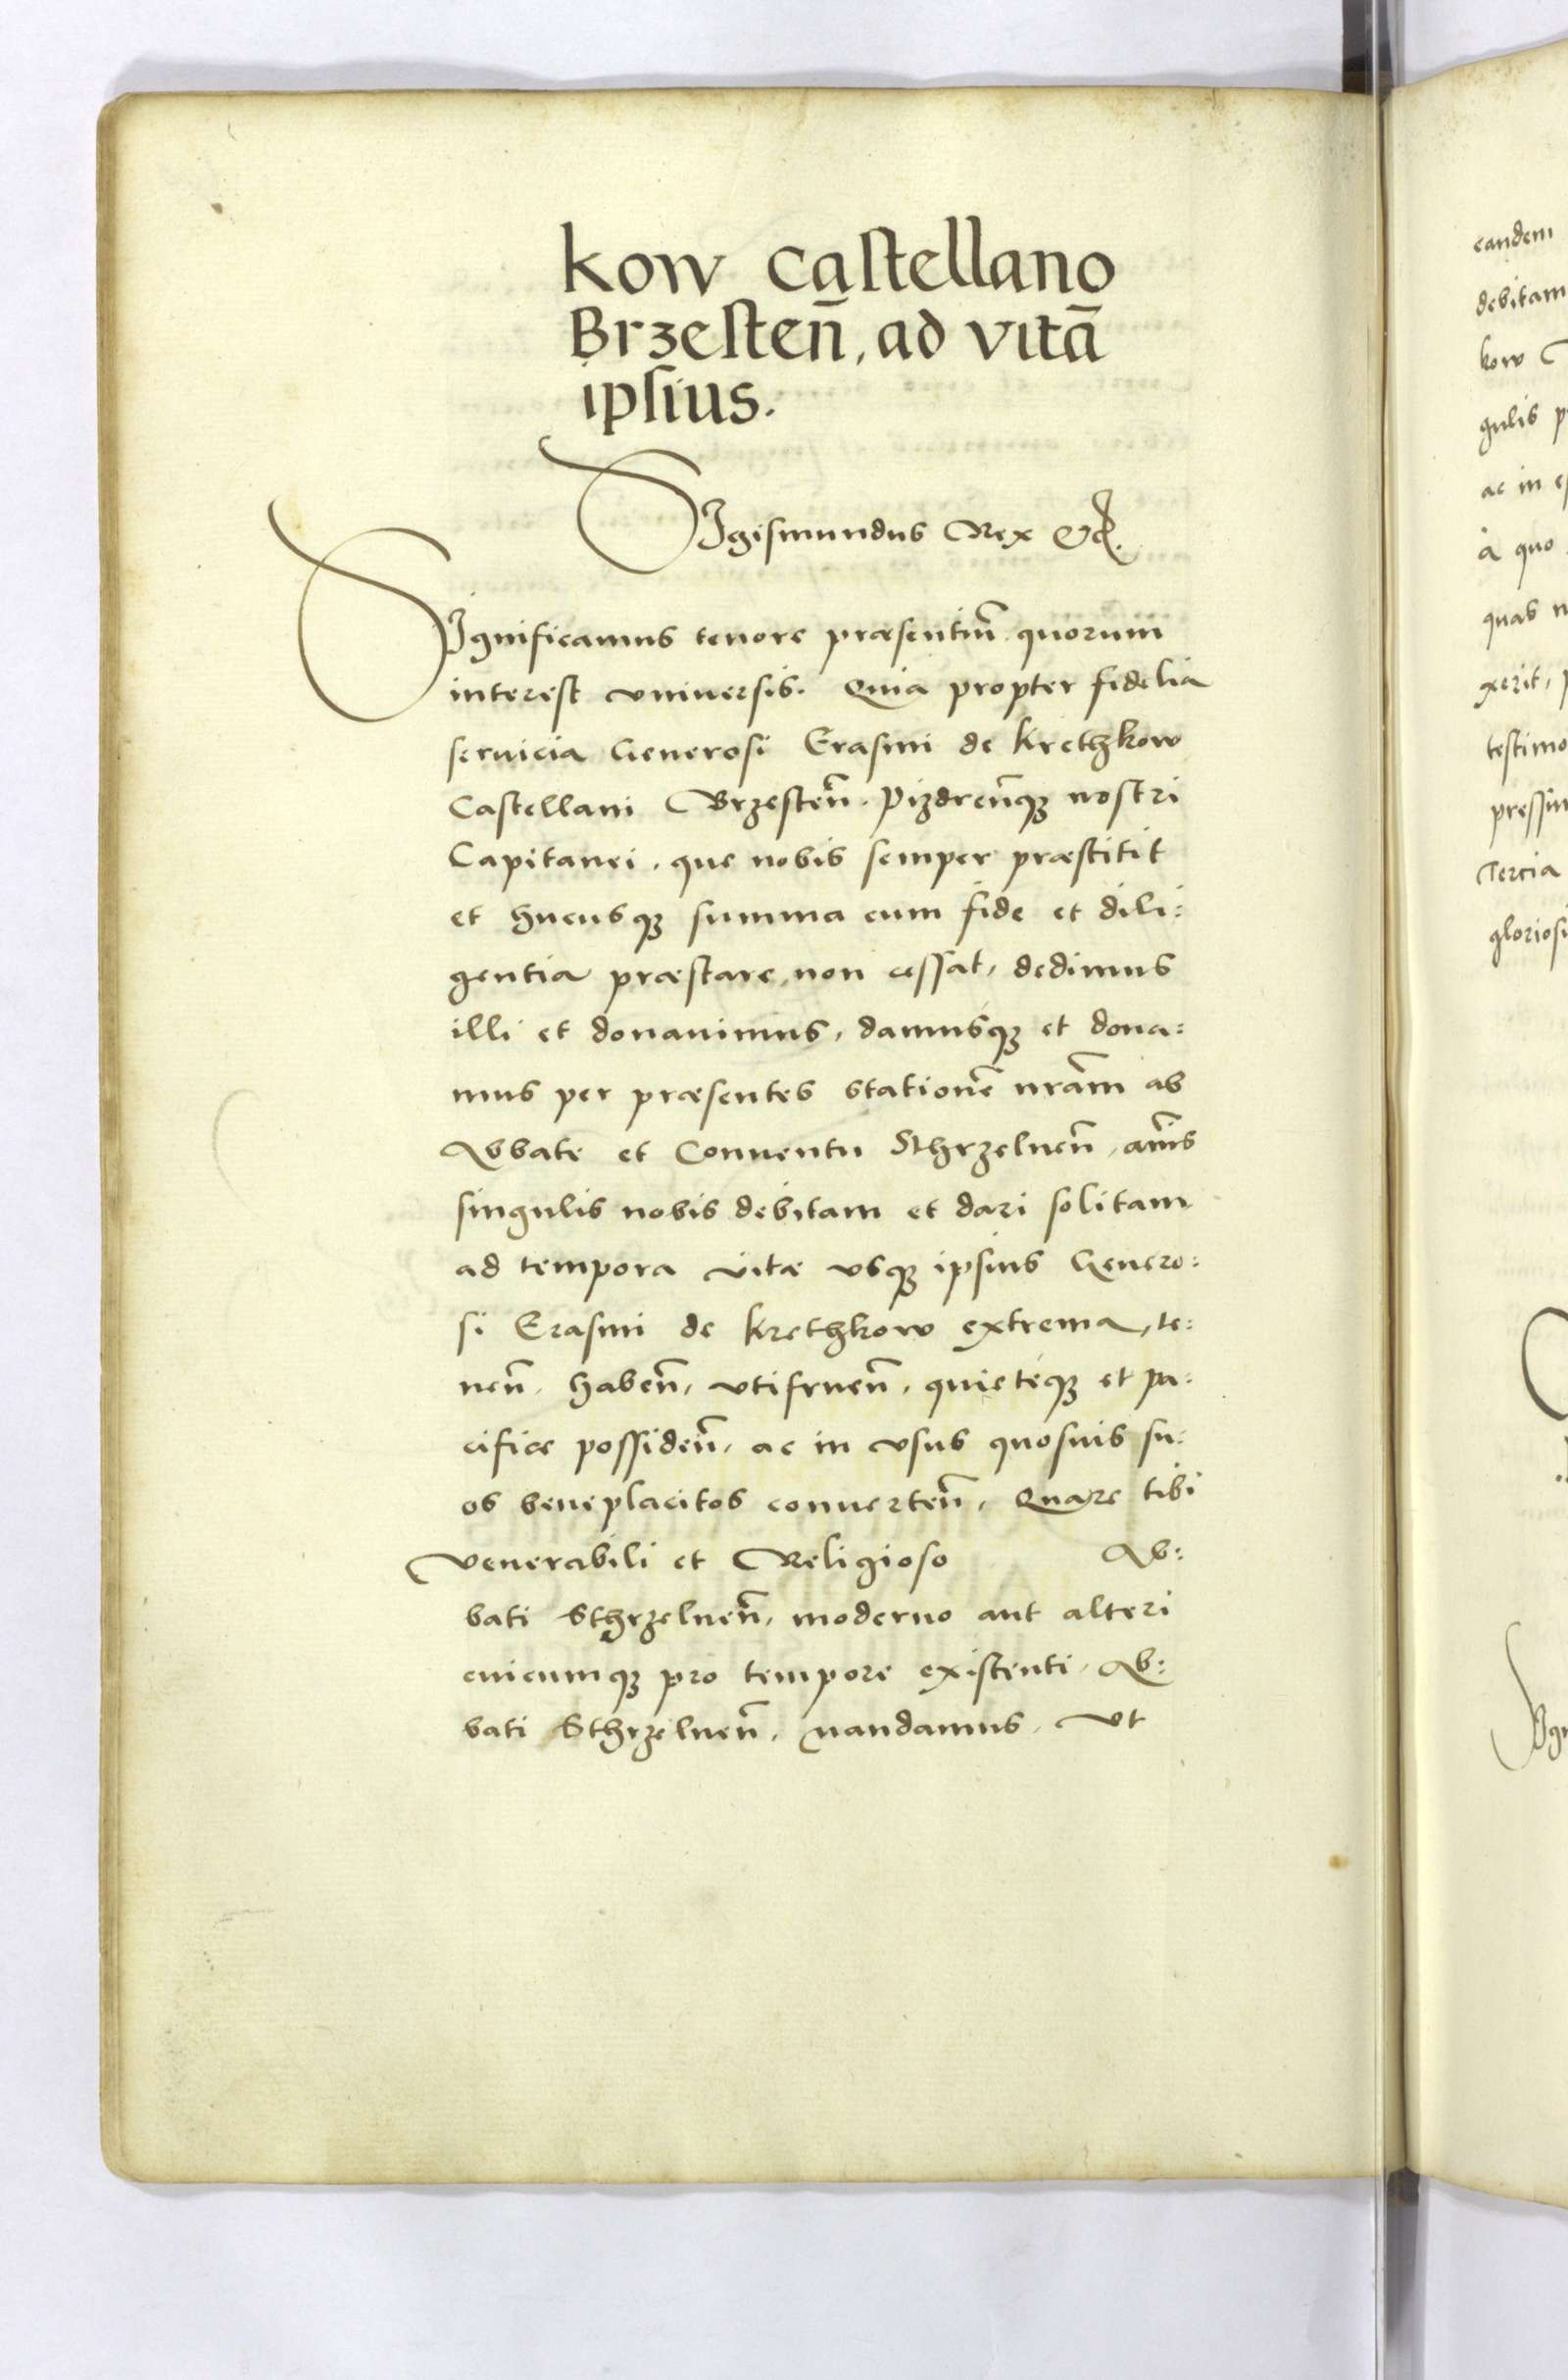 kow Castellano
Brzesteñ, ad vitã
ipsius.
Sigismundus Rex &c.
Significamus tenore præsentiũ quorum
interest vniuersis. Quia propter fidelia
seruicia Generosi Erasmi de Krethkow
Castellani Brzesteñ. Pizdreñqꝫ nostri
Capitanei, que nobis semper præstitit
et hucusqꝫ summa cum fide et dili:
gentia præstare, non cessat, dedimus
illi et donauimus, damusqꝫ et dona:
mus per præsentes stationẽ nrãm ab
Abbate et Conuentu Sthrzelneñ, añis
singulis nobis debitam et dari solitam
ad tempora vitæ vsqꝫ ipsius Genero:
si Erasmi de Krethkow extrema, te:
neñ, habeñ, vtifrueñ, quieteqꝫ et pa:
cifice possideñ, ac in vsus quosuis su:
os beneplacitos conuerteñ, Quare tibi
Venerabili et Religioso Ab:
bati Sthrzelneñ, moderno aut alteri
cuicumqꝫ pro tempore existenti, Ab:
bati Sthrzelneñ, mandamus, Vt
eandem
debitam
kow
gulis
ac in
à quo
quas
xerit,
testimo
pressim
Tercia
gloriosi